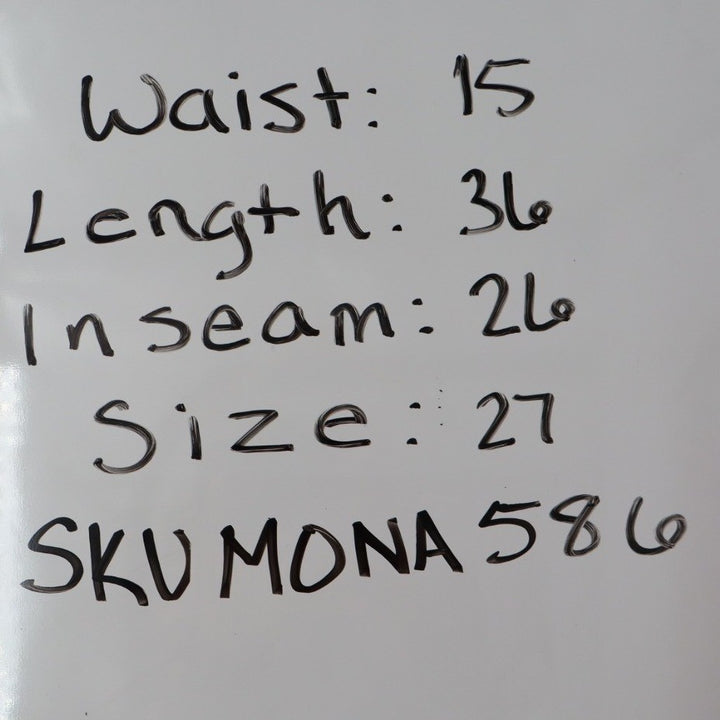 Waist: 15
Length: 36
Inseam: 26
Size: 27
SKU MONA 586